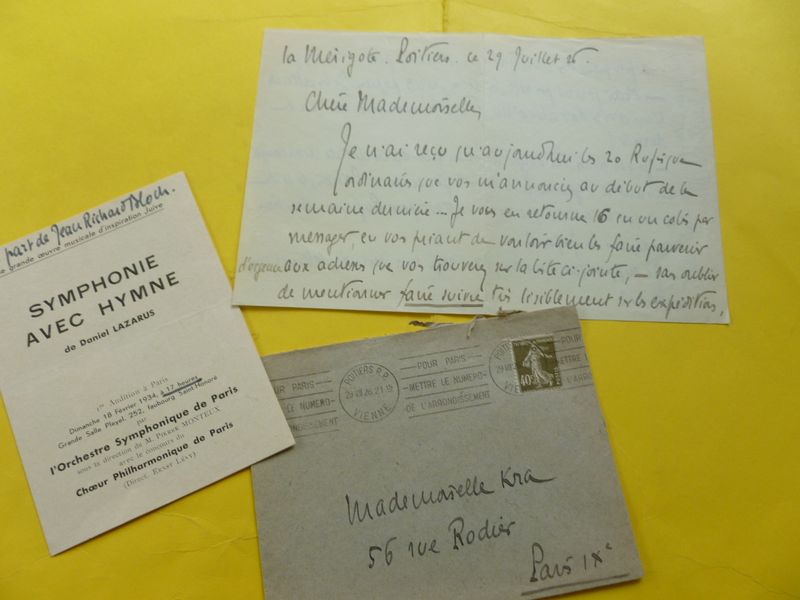 la Mérigote. Poitiers. ce 29 Juillet 26.
Chère Mademoiselle,
Je n'ai reçu qu'aujourd'hui les 20
ordinaires que vous m'annonciez au début de la
semaine dernière... Je vous en retourne 16 en un colis par
messager, en vous priant de vouloir bien les faire parvenir
d'urgence aux adresses que vous trouverez sur la liste ci-jointe, — sans oublier
de mentionner faire suivre très lisiblement sur les expéditions,
part de Jean Richard Bloch.
grande œuvre musicale d'inspiration Juive
SYMPHONIE
AVEC HYMNE
de Daniel LAZARUS
1re Audition à Paris
Dimanche 18 Février 1934, à 17 heures
Grande Salle Pleyel, 252, faubourg Saint-Honoré
par
l'Orchestre Symphonique de Paris
sous la direction de M. PIERRE MONTEUX
avec le concours du
Chœur Philharmonique de Paris
(Direct. ERNST LÉVY)
POUR PARIS
METTRE LE NUMERO
DE L'ARRONDISSEMENT
POITIERS R.P.
29 VII 26 21 15
VIENNE
POUR PARIS
METTRE LE NUMERO
DE L'ARRONDISSEMENT
40c
Mademoiselle Kra
56 rue Rodier
Paris IXe